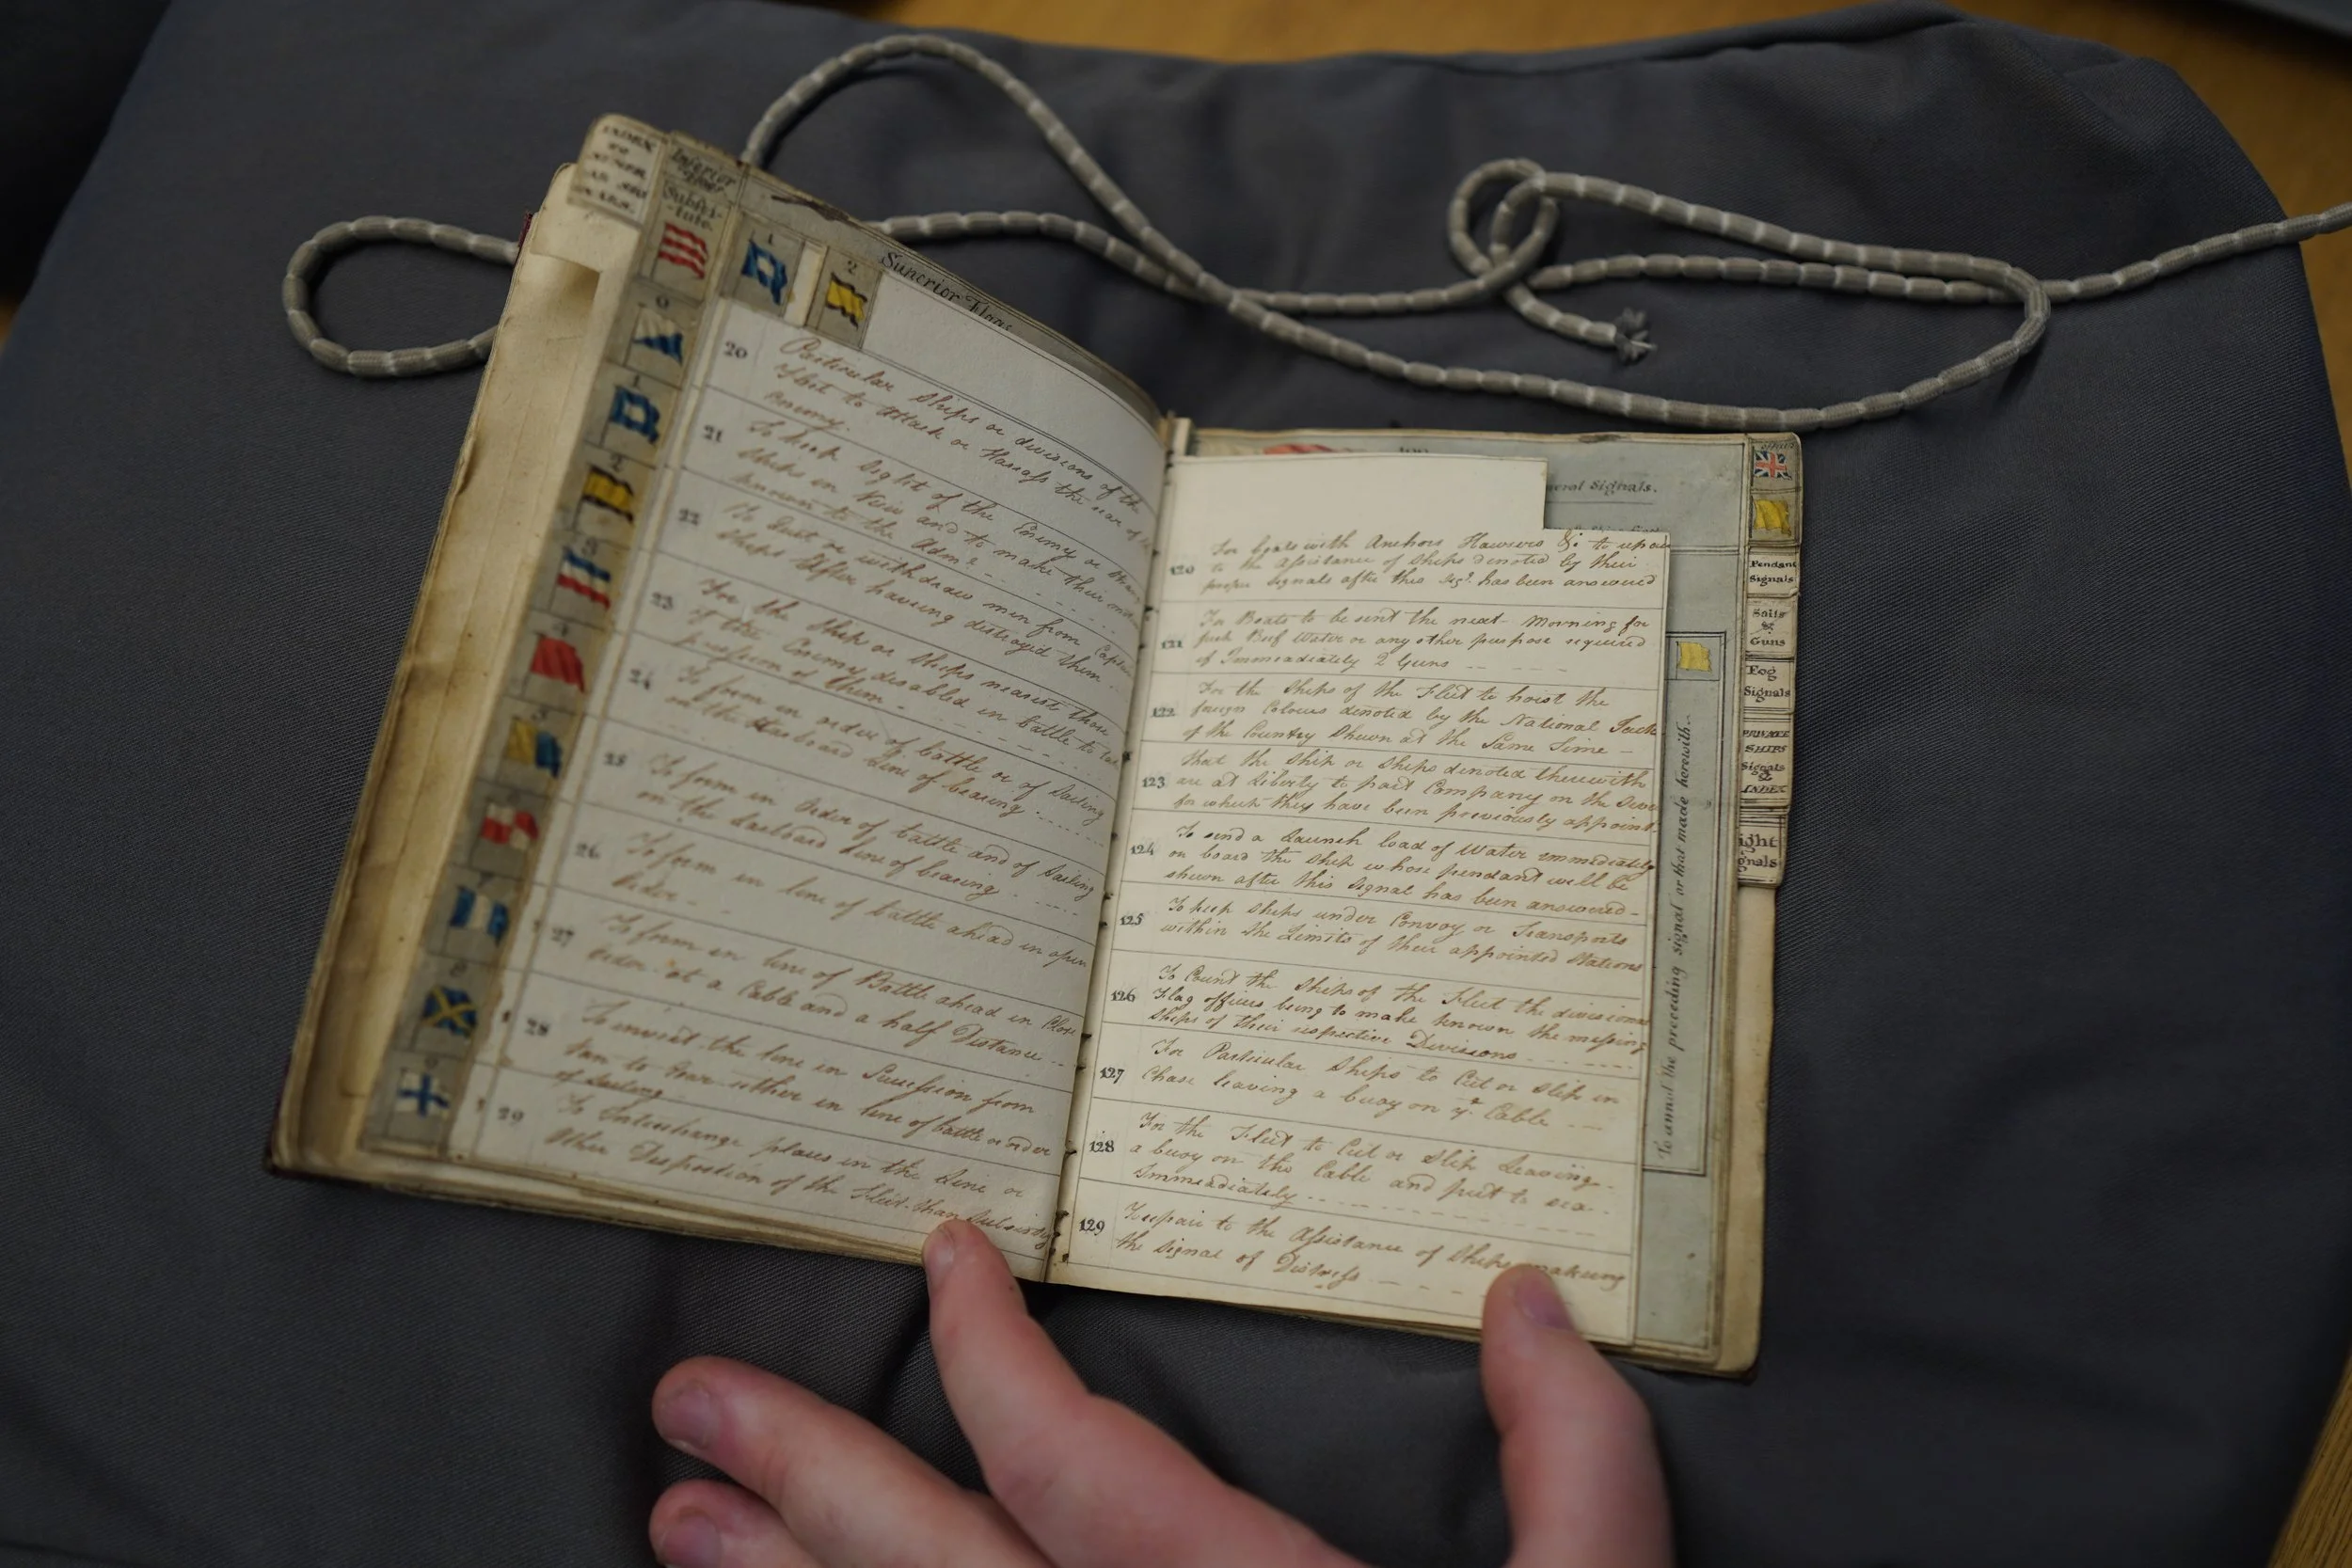 INDEX
TO
Inferior
Flags
Substi-
tute.
0
1
2
3
4
5
7
8
9
1
2
Superior Flags
20 Particular Ships or divisions of the
Fleet to Attack or Harass the rear of the
Enemy.
21 To keep Sight of the Enemy or Strange
Ships in View and to make their motions
known to the Adml
22 To Quit or withdraw men from Captured
Ships After having distroy'd them
23 For the Ship or Ships nearest those
of the Enemy disabled in battle to take
possession of them
24 To form in order of battle or of Sailing
on the Starboard line of bearing
25 To form in Order of battle and of Sailing
on the Larboard line of bearing
26 To form in line of battle ahead in open
Order
27 To form in line of Battle ahead in Close
Order at a Cable and a half Distance
28 To invert the line in Succession from
Van to Rear either in line of battle or order
of Sailing
29 To Interchange places in the Line or
Other Disposition of the Fleet than
100
neral Signals.
120 For boats with Anchors Hawsers &c to repair
to the Assistance of Ships denoted by their
proper Signals after this Sigl. has been answered
121 For Boats to be sent the next Morning for
fresh Beef Water or any other purpose required
if Immeadiately 2 Guns
122 For the Ships of the Fleet to hoist the
foreign Colours denoted by the National Jack
of the Country Shewn at the Same Time
123 That the Ship or Ships denoted therewith
are at Liberty to part Company on the
for which they have been previously appoint
124 To send a Launch load of Water immediately
on board the Ship whose pendant will be
shewn after this Signal has been answered
125 To keep Ships under Convoy or Transports
within the Limits of their appointed Stations
126 To Count the Ships of the Fleet the divisional
Flag officers being to make known the missing
Ships of their respective Divisions
127 For Particular Ships to Cut or Slip in
Chase leaving a buoy on ye. Cable
128 For the Fleet to Cut or Slip Leaving
a buoy on the Cable and put to sea
Immeadiately
129 To repair to the Assistance of Ships making
the Signal of Distress
To annul the preceding signal or that made herewith.
Pendant
Signals
Sails
&
Guns
Fog
Signals
PRIVATE
SHIPS
Signals
&
INDEX
ight
gnals